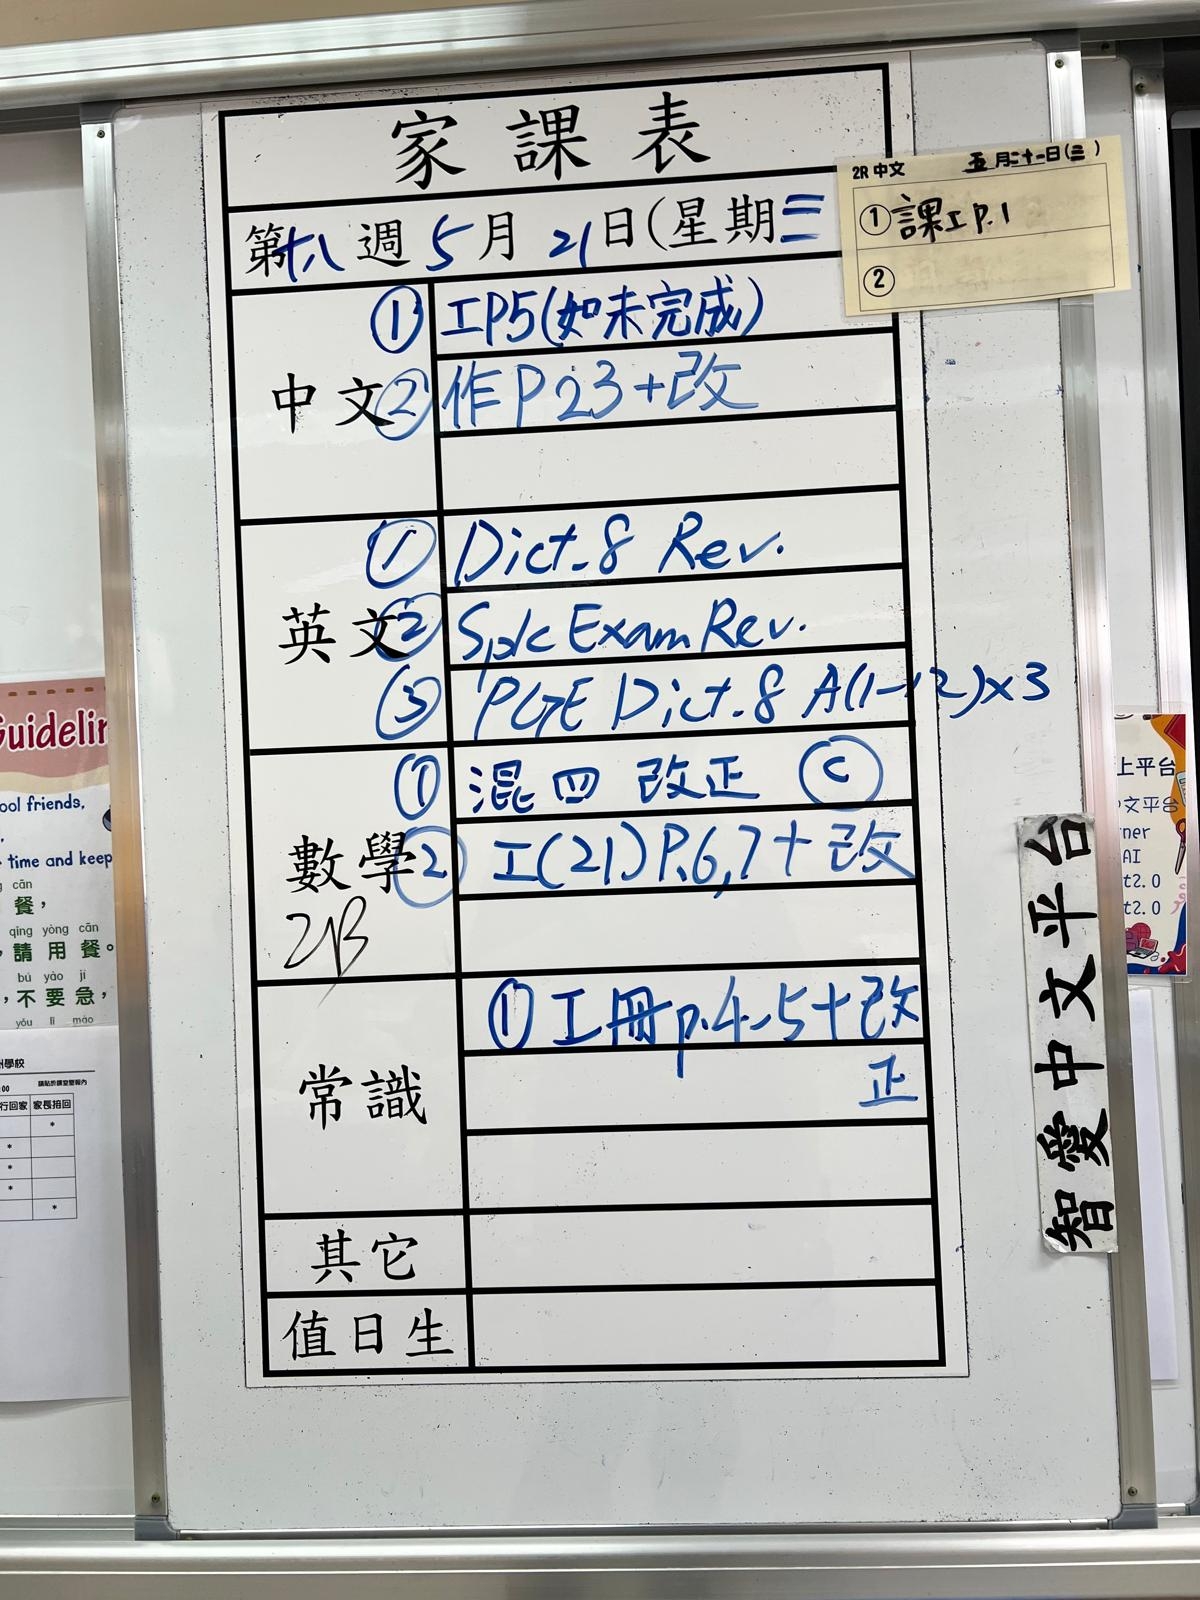 家課表
第十八週 5月21日(星期三
2R 中文 五月二十一日(三)
① 課工p.1
②
中文
① 工P5(如未完成)
② 作P23+改
英文
① Dict.8 Rev.
② Spk Exam Rev.
③ PGE Dict.8 A(1-12)x3
數學
2B
① 混四 改正 Ⓒ
② 工(21)P.6,7+改
常識
① 工冊p.4-5+改
正
其它
值日生
智愛中文平台
Guidelin
ool friends,
time and keep
cān
餐，
qǐng yòng cān
，請用餐。
bú yào jí
，不要急，
yǒu lǐ mào
州學校
:00
請貼於課室壁報內
行回家 家長接回
*
*
*
*
*
上平台
中文平台
rner
AI
t2.0
t2.0